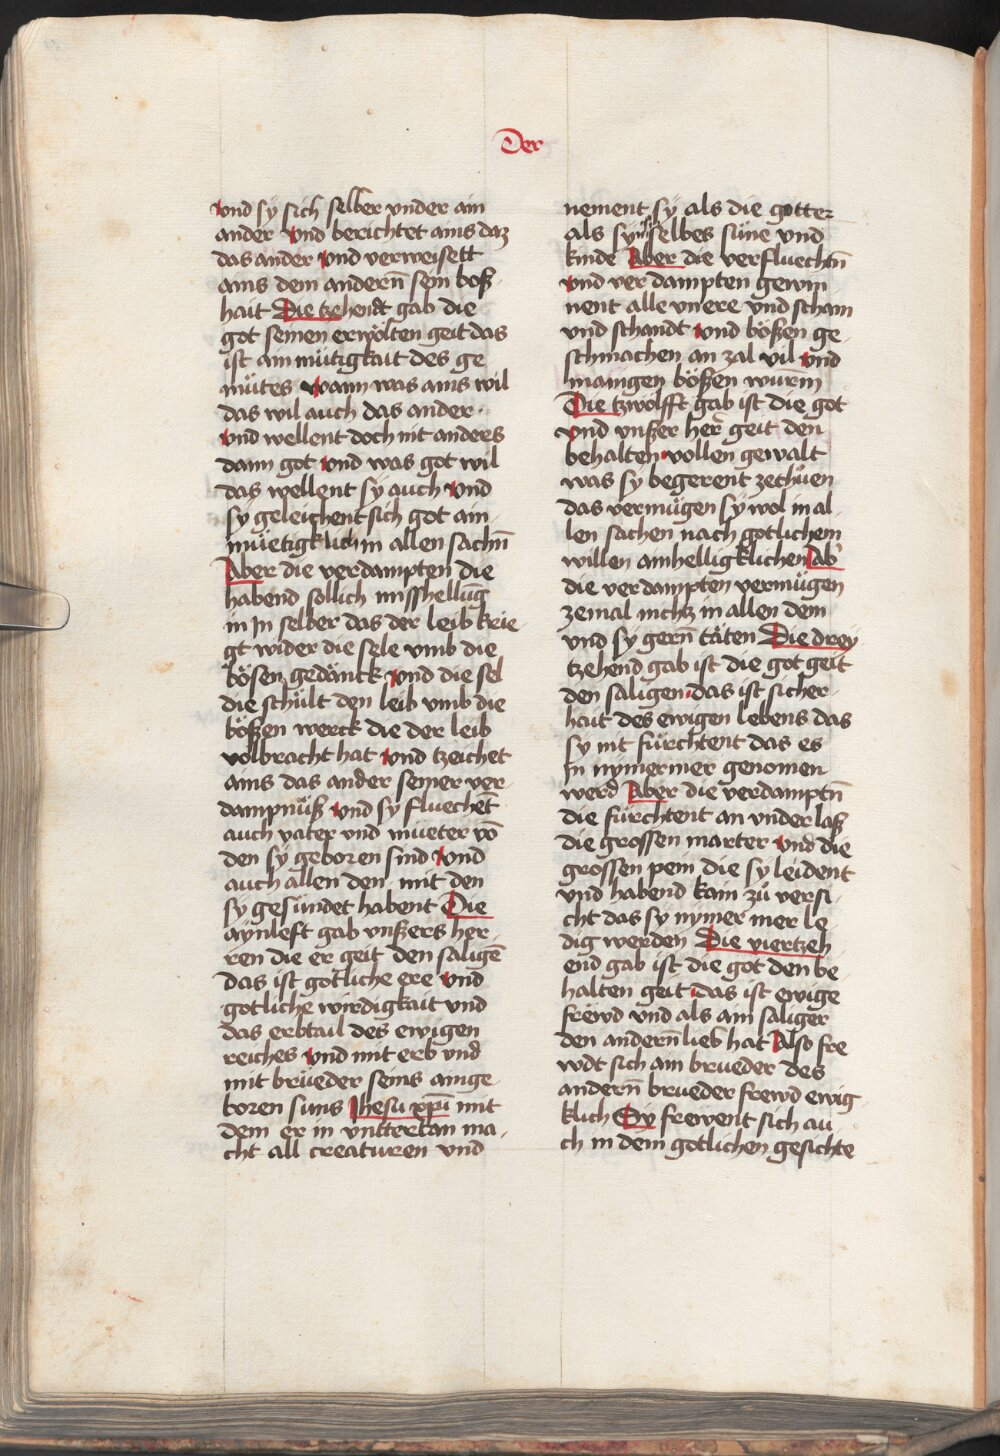 Der
vnd sy sich selber vnder ain
ander vnd berichtet ains daz
das ander vnd verweisett
ains dem andern̄ sein boß
hait Die tzehendt gab die
got seinen erwölten geit das
ist ain mütigkait des ge
mütes wann was ains wil
das wil auch das ander·
vnd wellent doch nit anders
dann got vnd was got wil
das wellent sy auch vnd
sy geleichent sich got ain
müetigklich in allen sachn̄
Aber die verdampten die
habend sollich misshellūg
in In selber das der leib krie
gt wider die sele vmb die
bösen gedänck vnd die sel
die schült den leib vmb die
bößen werck die der leib
volbracht hat vnd tzeichet
ains das ander seiner ver
dampnüß vnd sy fluechet̄
auch vater vnd mueter vō
den sy geboren sind vnd
auch allen den mit den
sy gesündet habent Die
aynleft gab vnßers her
ren die er geit den saligē
das ist gotliche ere vnd
gotliche wirdigkait vnd
das erbtail des ewigen
reiches vnd mit erb vnd
mit brüeder seins ainge
boren suns Jhesu xp̄i mit
dem er in vntterkan ma
cht all creaturen vnd
nement sy als die götter
als syns selbes süne vnd
kinde Aber die verfluechtn̄
vnd verdampten gewin
nent alle vnere vnd scham
vnd schandt vnd bößen ge
schmachen an zal vil vnd
manigen bößen wurm̄
Die tzwölfft gab ist die got
vnd vnßer her̄ geit den
behalten vollen gewalt
was sy begerent zethůen
das vermügen sy wol in al
len sachen nach gotlichem
willen ainhelligklichen Ab̾
die verdampten vermügen
zemal nichz in allen dem
vnd sy gern̄ täten Die drey
tzehend gab ist die got geit
den saligen das ist sicher
hait des ewigen lebens das
sy nit fürchtent das es
In nymermer genomen
werd Aber die verdamptn̄
die fürchtent an vnderlaß
die grossen marter vnd die
grossen pein die sy leident
vnd habend kain zů versi
cht das sy nymer mer le
dig werden Die viertzeh
end gab ist die got den be
halten geit das ist ewige
frewd vnd als ain saliger
den andern̄ lieb hat Also fre
wdt sich ain brueder des
andern̄ brueder frewd ewig
klich Sy frewent sich au
ch in dem gotlichen gesichte